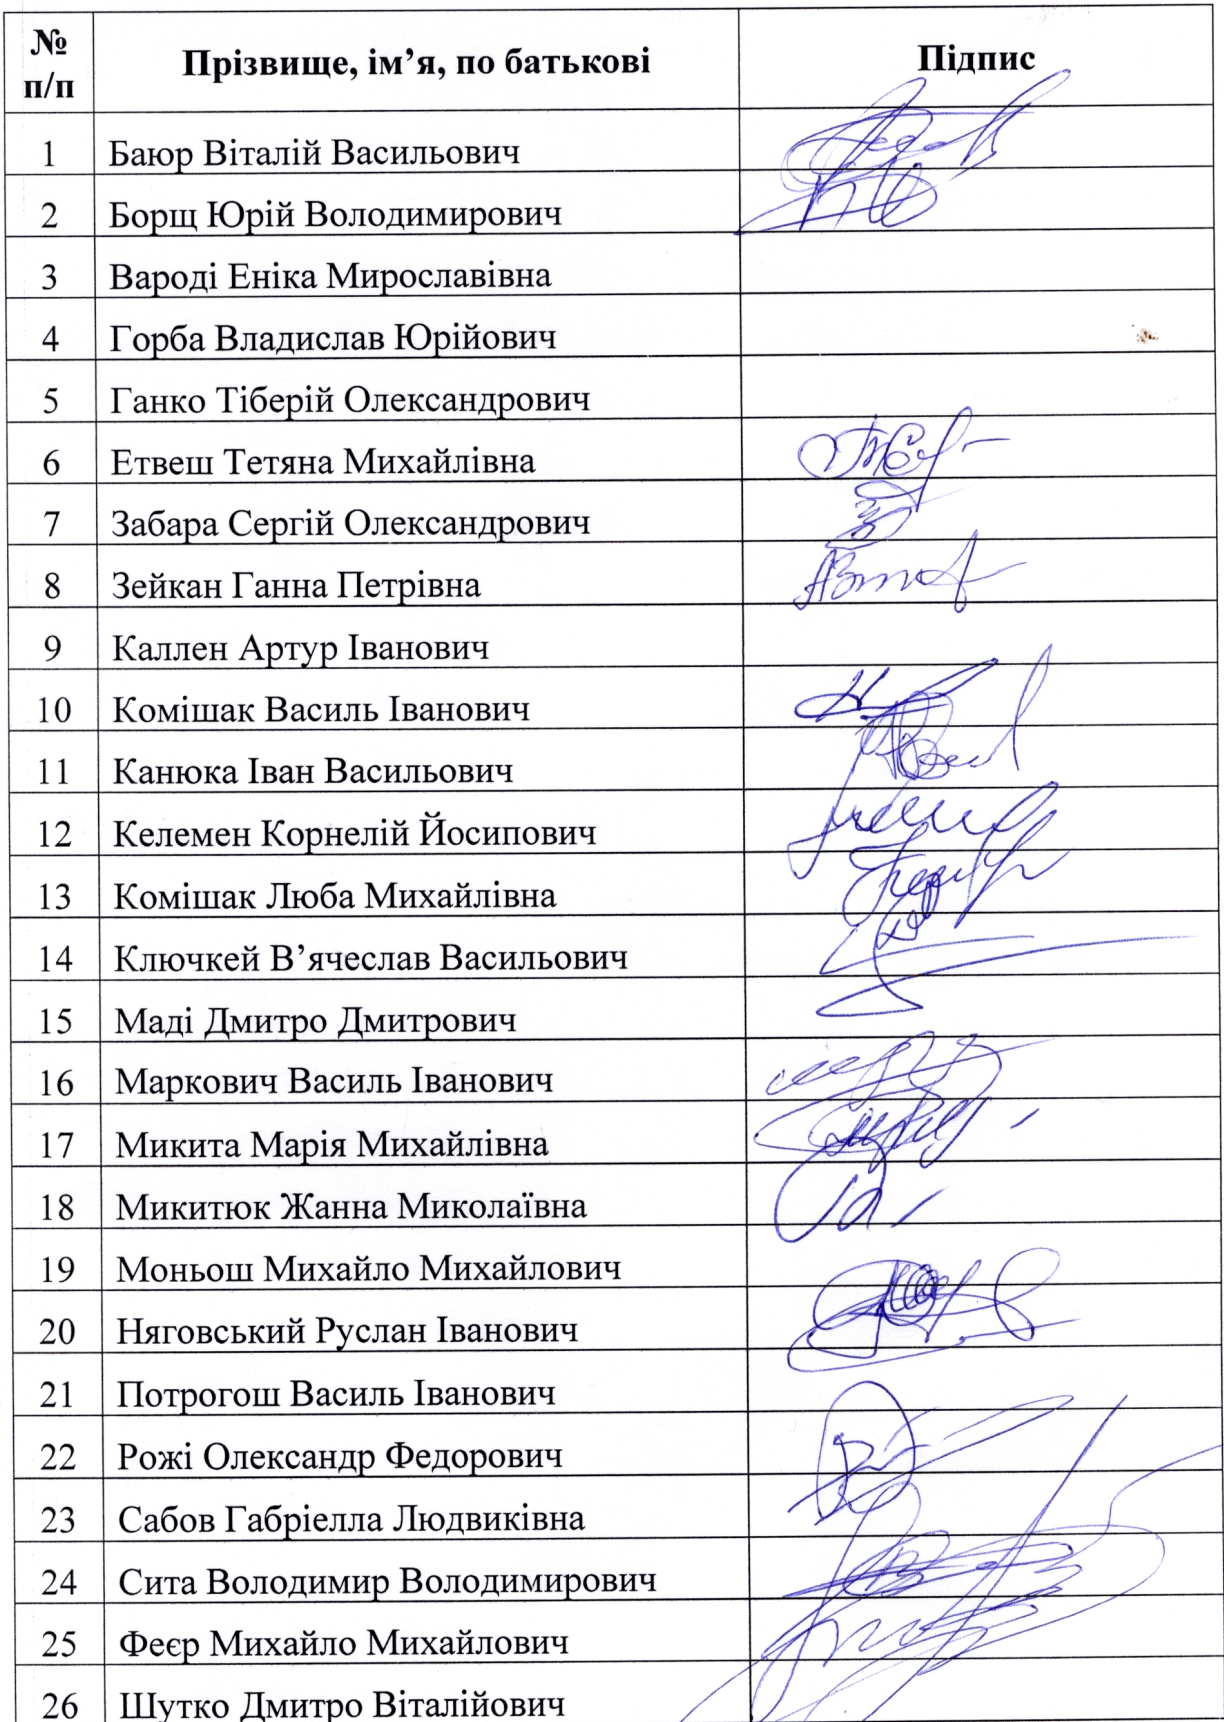 № п/п Прізвище, ім’я, по батькові Підпис
1 Баюр Віталій Васильович
2 Борщ Юрій Володимирович
3 Вароді Еніка Мирославівна
4 Горба Владислав Юрійович
5 Ганко Тіберій Олександрович
6 Етвеш Тетяна Михайлівна
7 Забара Сергій Олександрович
8 Зейкан Ганна Петрівна
9 Каллен Артур Іванович
10 Комішак Василь Іванович
11 Канюка Іван Васильович
12 Келемен Корнелій Йосипович
13 Комішак Люба Михайлівна
14 Ключкей В’ячеслав Васильович
15 Маді Дмитро Дмитрович
16 Маркович Василь Іванович
17 Микита Марія Михайлівна
18 Микитюк Жанна Миколаївна
19 Моньош Михайло Михайлович
20 Няговський Руслан Іванович
21 Потрогош Василь Іванович
22 Рожі Олександр Федорович
23 Сабов Габріелла Людвиківна
24 Сита Володимир Володимирович
25 Феєр Михайло Михайлович
26 Шутко Дмитро Віталійович